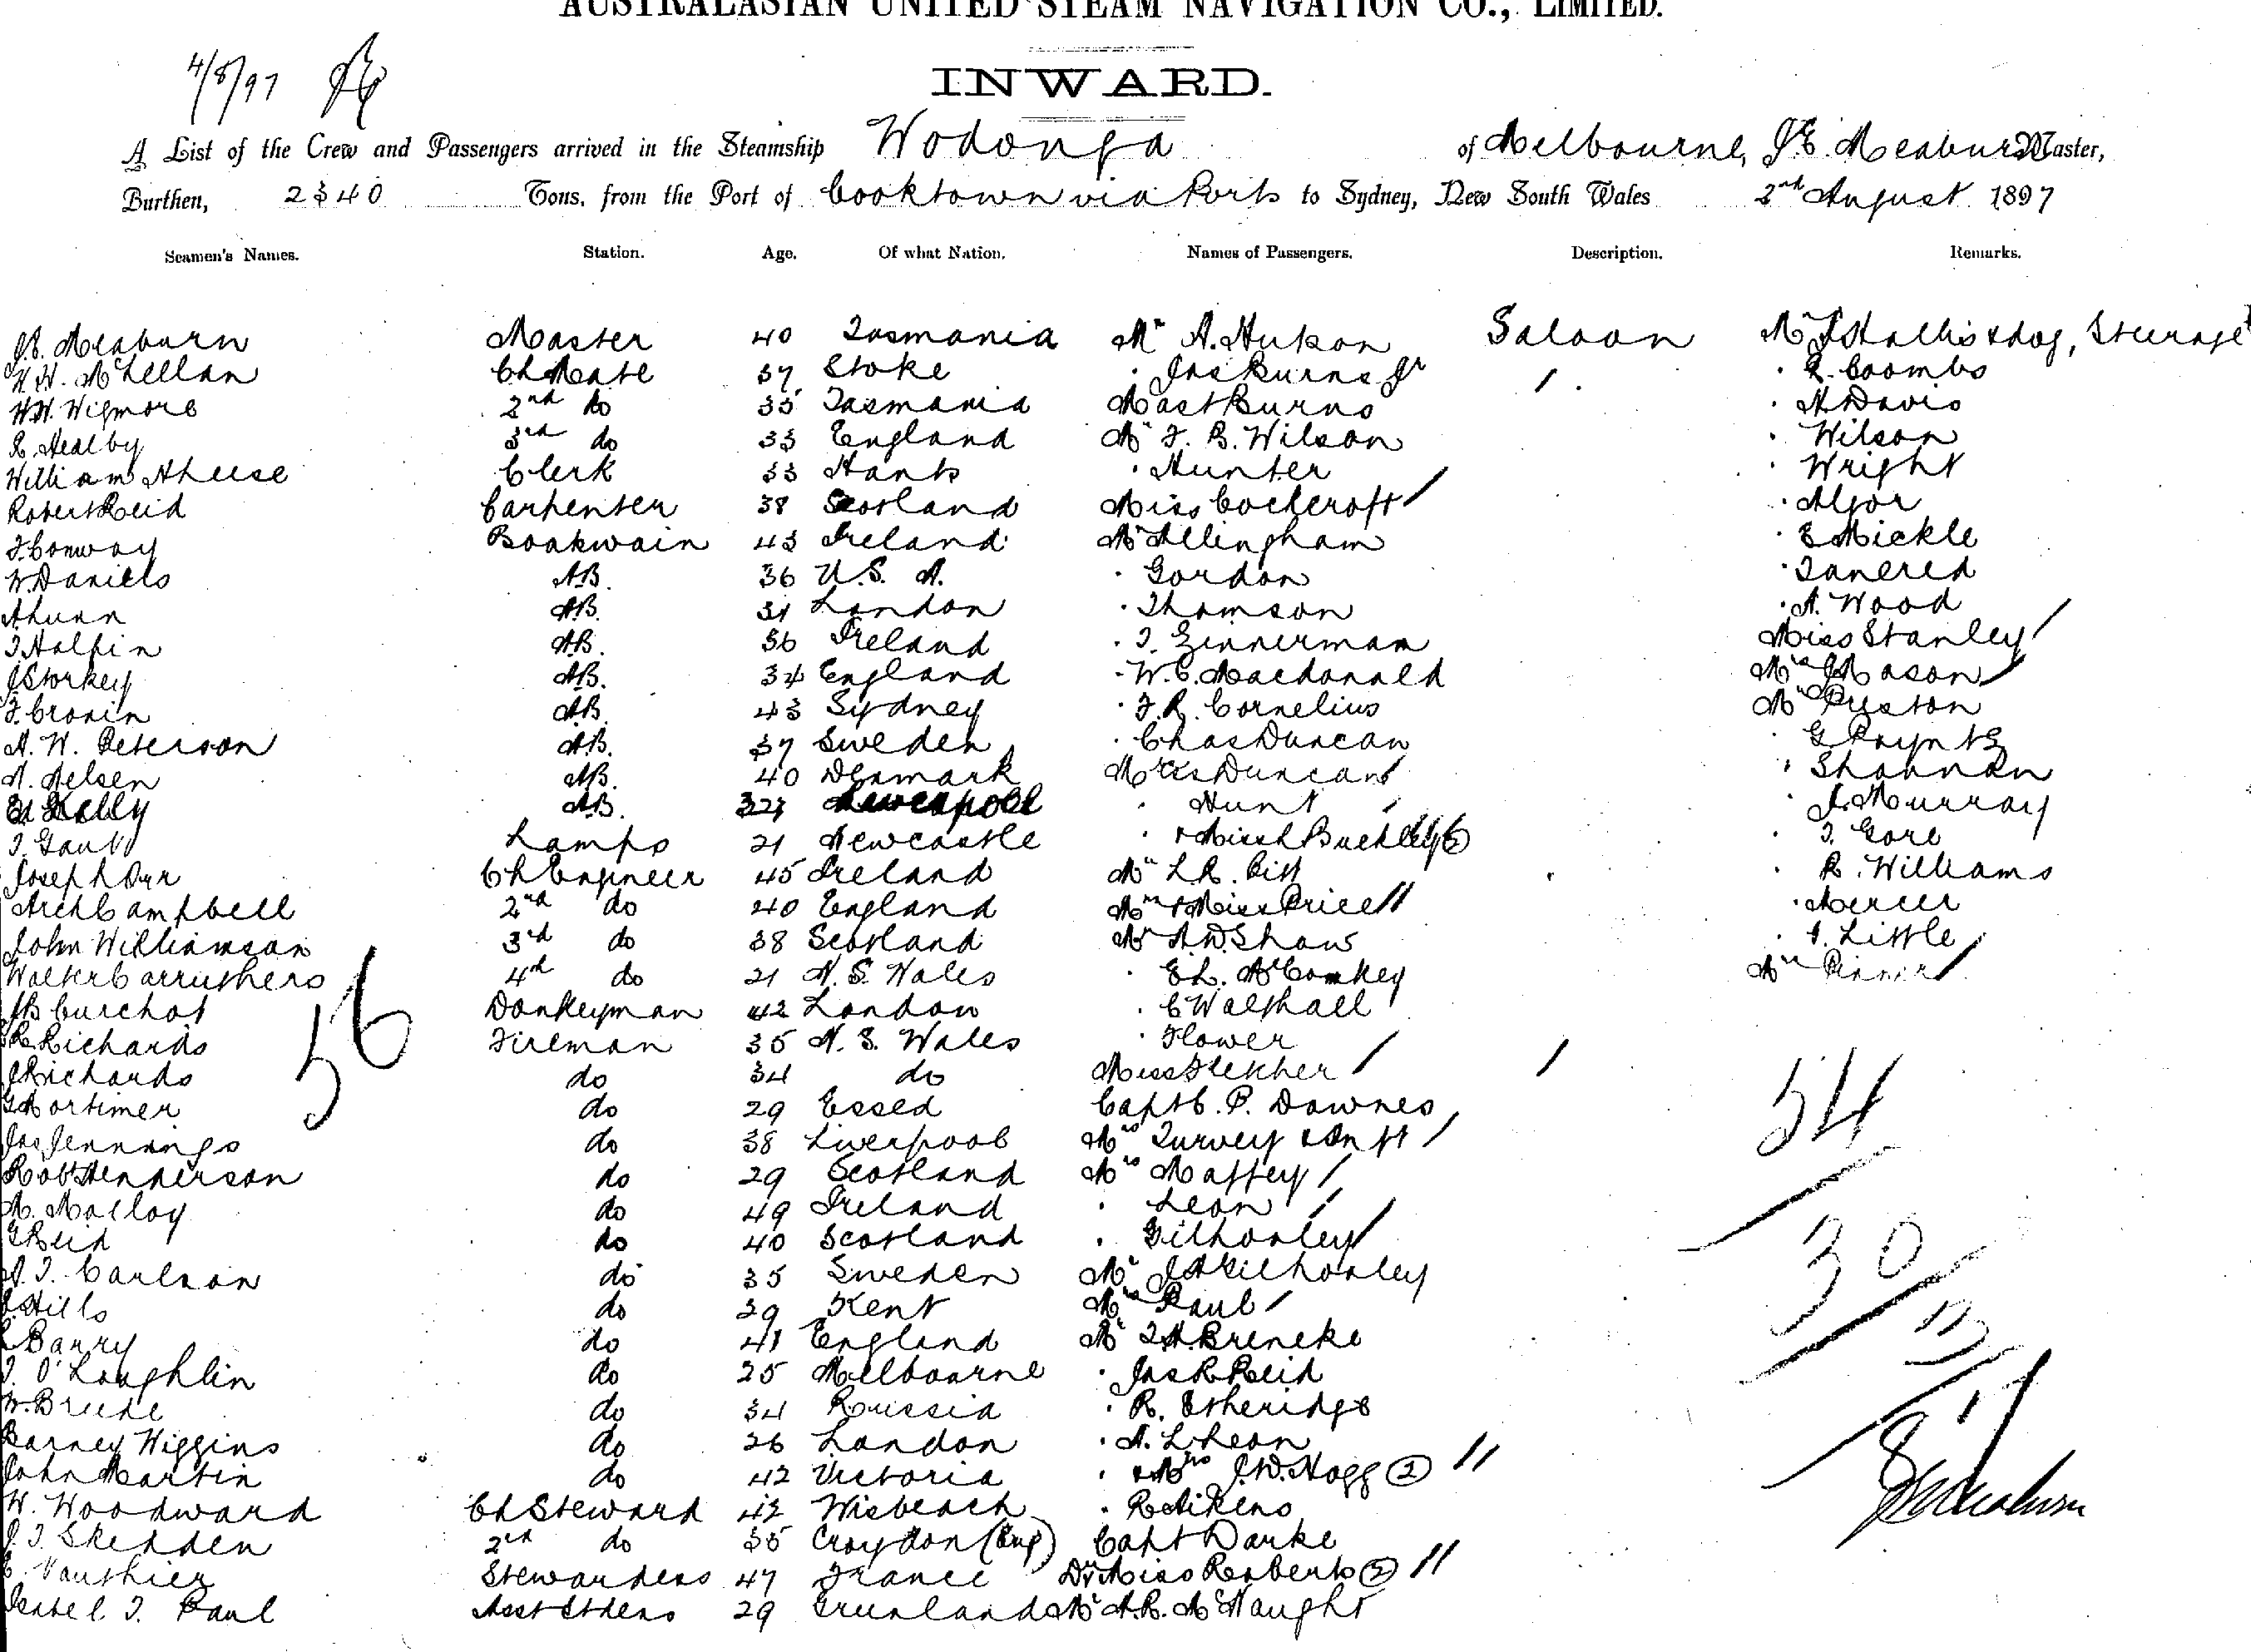 AUSTRALASIAN UNITED STEAM NAVIGATION CO., LIMITED.
4/8/97
INWARD.
A List of the Crew and Passengers arrived in the Steamship Wodonga of Melbourne, J.E. Meaburn Master,
Burthen, 2340 Tons, from the Port of Cooktown via Ports to Sydney, New South Wales 2nd August 1897
Seamen's Names. Station. Age. Of what Nation. Names of Passengers. Description. Remarks.
J.E. Meaburn Master 40 Tasmania Mr A. Hukon Saloon Mr Hallis & dog, Steerage
McLellan Ch Mate 37 Stoke Jas Burns Jr Coombs
W.H. Wigmore 2nd do 35 Tasmania Mast Burns A Davis
R. Healby 3rd do 33 England Mr F. B. Wilson Wilson
William Clerk 33 Hants Hunter Wright
Robert Reid Carpenter 38 Scotland Miss Cockcroft Algor
J. Conway Boatswain 43 Ireland Mr Allingham E Mickle
W. Daniels AB. 36 U.S. A. Gordon Tancred
AB. 31 London Thomson A. Wood
T Halpin AB. 36 Ireland J. Zinnerman Miss Stanley
J Storkey AB. 34 England W.C. Macdonald Mrs Mason
J. Cronin AB. 43 Sydney F.R. Cornelius Mr Preston
A. W. Peterson AB. 37 Sweden Chas Duncan G Poynts
A. Nelsen AB. 40 Denmark Duncan Shannon
Kelly AB. Liverpool Hunt J. Murray
T. Gault Lamps 21 Newcastle & Miss Buckley (2) T. Gore
Joseph Orr Ch Engineer 45 Ireland Mr L.R. R. Williams
Arch Campbell 2nd do 40 England Mrs & Miss Price Mercer
John Williamson 3rd do 38 Scotland Mr A.W. Shaw Little
Walter Carruthers 4th do 21 N. S. Wales E.L. McConkey
Curchot Donkeyman 42 London C Walthall
R. Richards Fireman 35 N. S. Wales Flower
J Richards do 34 do Miss Fletcher
G Mortimer do 29 Essed Capt C. P. Downes 54
Jas Jennings do 38 Liverpool Mrs Turvey & Inft
56
Robt Henderson do 29 Scotland Mrs Maffey
M. Malloy do 49 Ireland Leon
G Reid do 40 Scotland Gilhooley 30
A. J. Carlson do 35 Sweden Mr Gilhooley
Hills do 39 Kent Mrs Paul 13
Barry do 41 England Mr Breneke
J. O'Loughlin do 25 Melbourne Jas R Reid
W. Brede do 34 Russia R. Etheridge
Barney Wiggins do 26 London A. L Leon 17
John Martin do 42 Victoria & Mrs J.W. Hogg (2)
W. Woodward Ch Steward 42 Wisbeach R Aikens
J. T. Skedden 2nd do 35 Croydon (Eng) Capt Darke
E. Vauthier Stewardess 47 France Dr & Miss Roberts (2)
Isabel J. Paul Asst Stdess 29 Mr A.R. McNaught